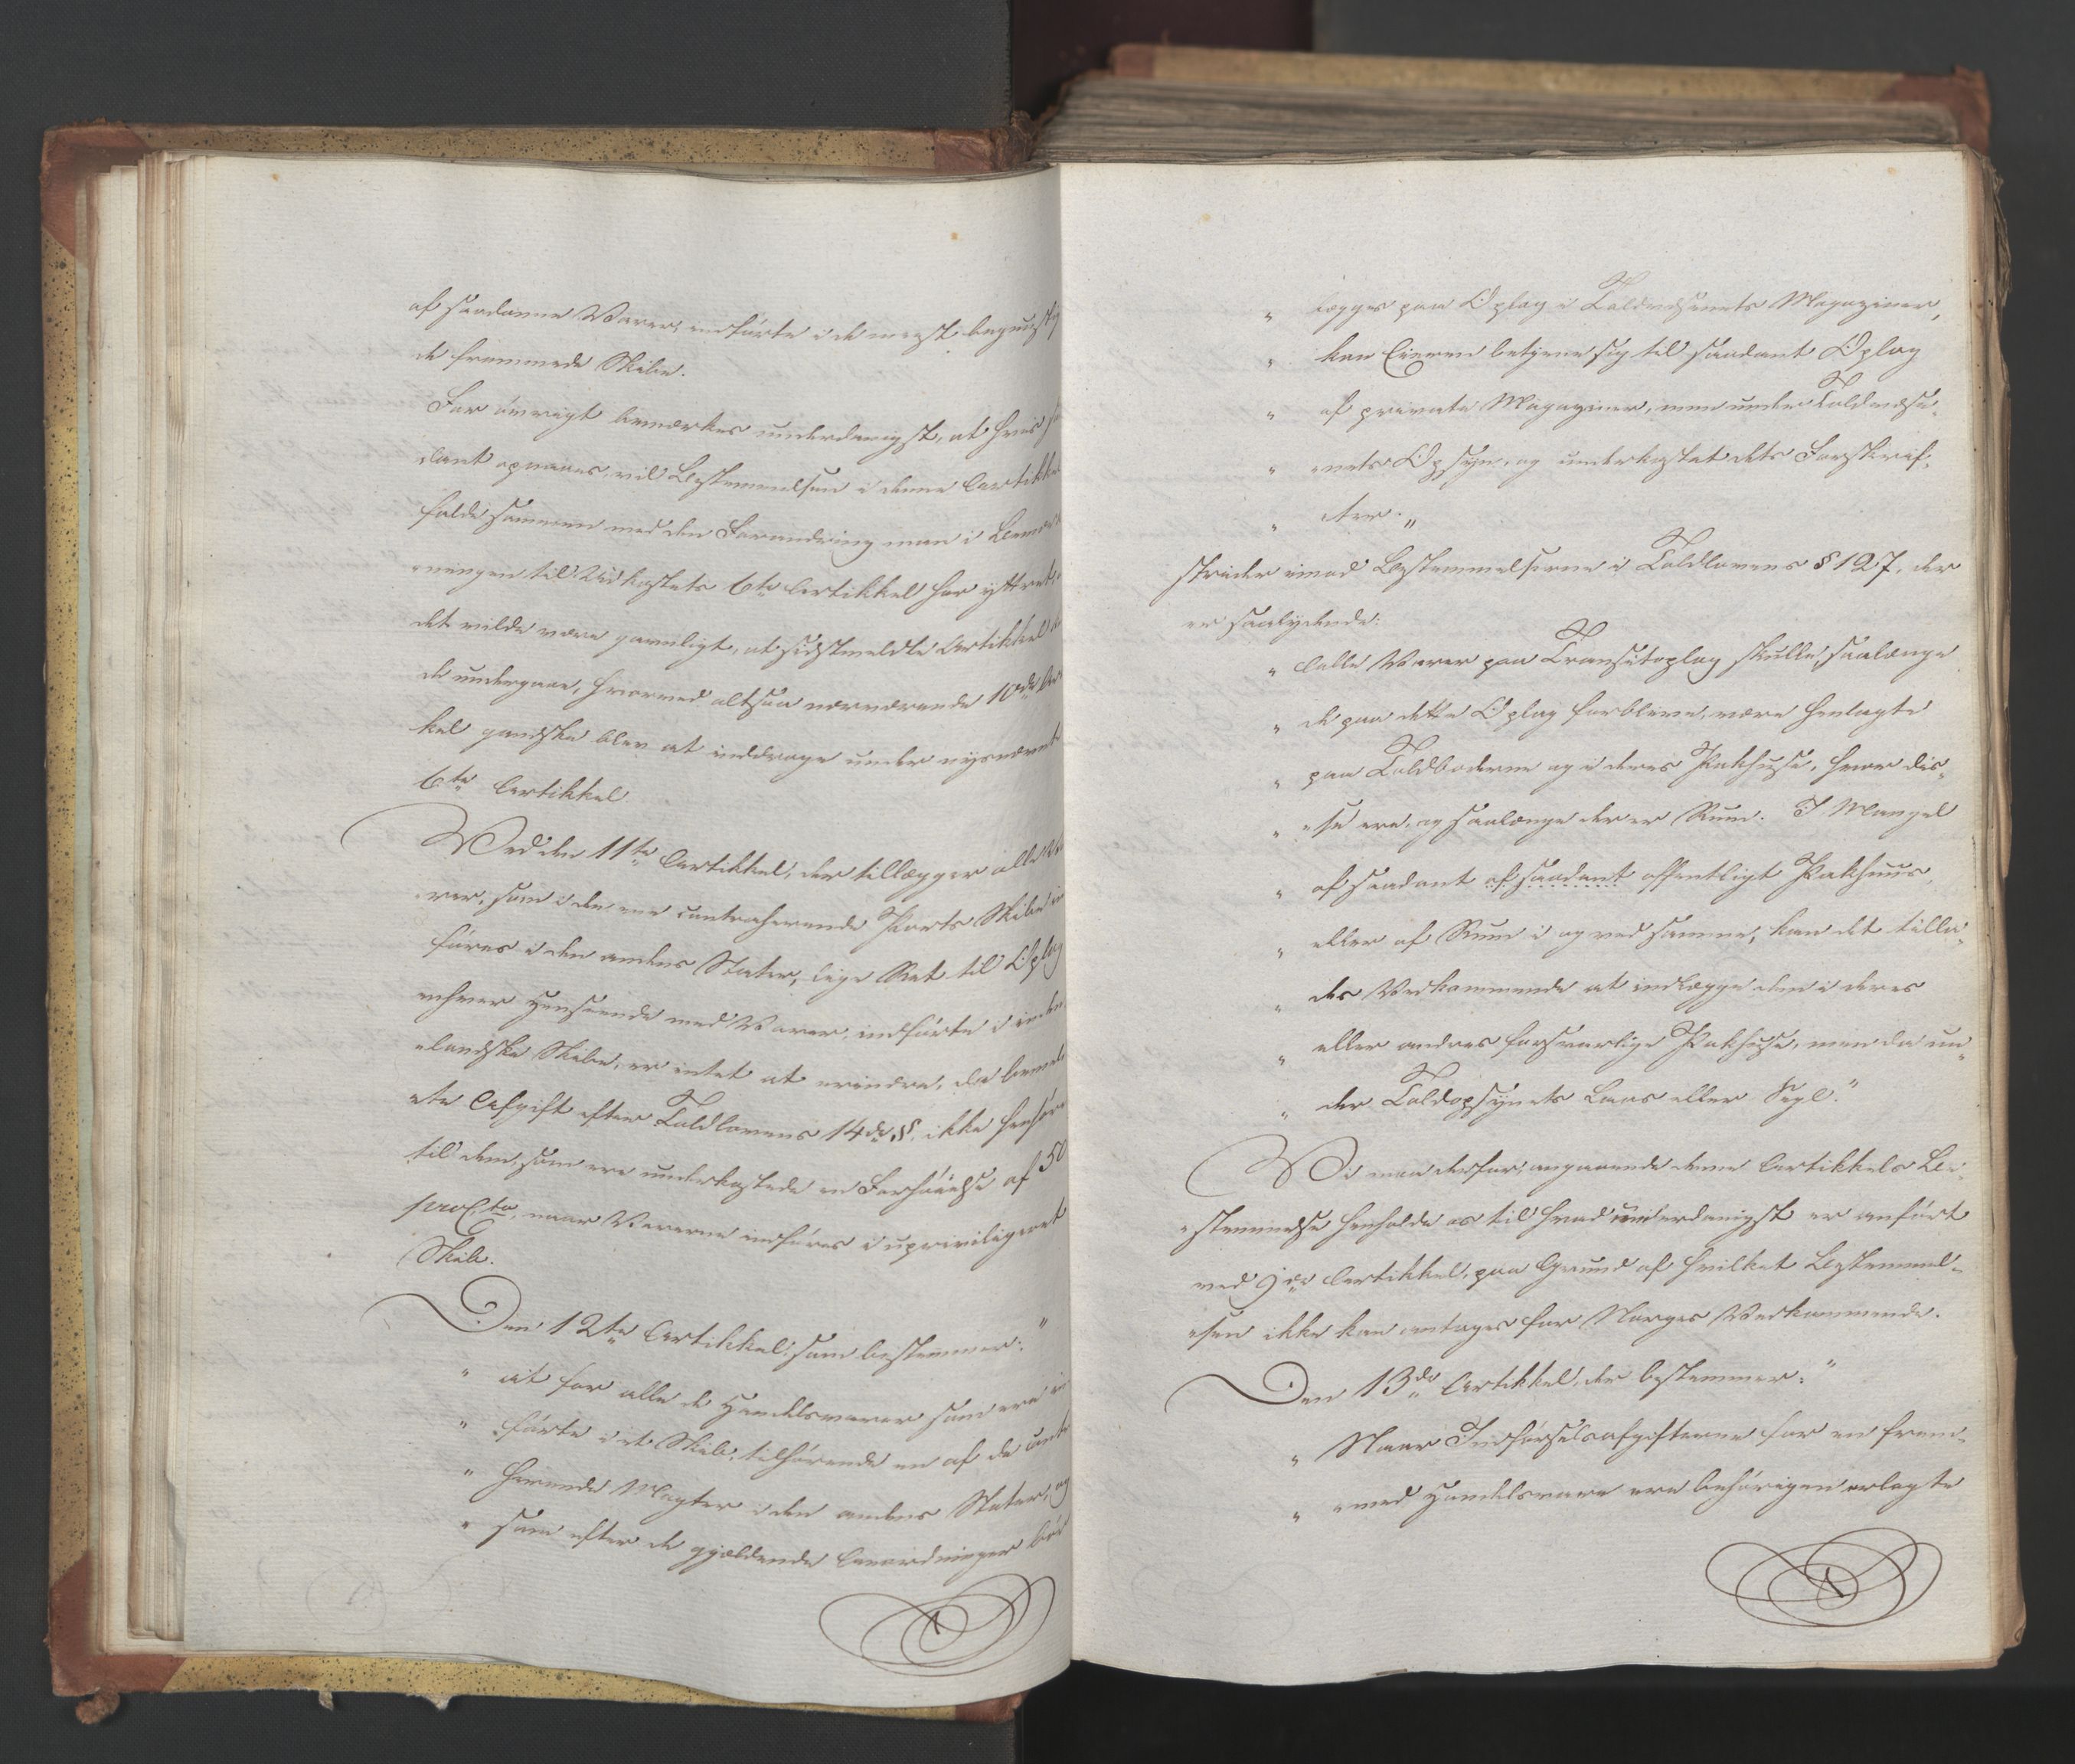 af saadanne Varer, indførte i de meest begunstig
de fremmede Skibe.
For øvrigt bemærkes underdanigst, at hvis
dant opnaaes, vil Bestemmelsen i denne Artikkel
falde sammen med den Forandring man i Bemærk
ningen til Udkastets 6te Artikkel har yttret,
det vilde være gavnligt, at sidstmeldte Artikkel
de undergaae, hvorved altsaa nærværende 10de Ar
kel gandske blev at inddrage under nysnævnt
6te Artikkel
Ved den 11te Artikkel, der tillægger alle Va
rer, som i den ene contraherende Parts Skibe in
føres i den andens Stater, lige Ret til Oplag
enhver Henseende med Varer, indførte i inden
landske Skibe, er intet at erindre, da bemeld
te Afgift efter Toldlovens 14de §. ikke henføre
til dem, som ere underkastede en Forhøielse af 50
proCto, naar Varerne indføres i upriviligeret
Skib.
Den 12te Artikkel, som bestemmer: "
" at for alle de Handelsvarer som ere in
" førte i et Skib, tilhørende en af de contr
" herende Magter i den andens Stater, og
" som efter de gjældende Anordninger bør
" lægges paa Oplag i Toldvæsenets Magaziner,
" kan Eieren betjene sig til saadant Oplag
" af private Magaziner, men under Toldvæse-
" enets Opsyn, og underkastet dets Forskrif-
" ter. "
strider imod Bestemmelserne i Toldlovens § 127, der
er saalydende:
" Alle Varer paa Transitoplag skulle, saalænge
" de paa dette Oplag forblive, være henlagte
" paa Toldboderne og i deres Pakhuse, hvor dis-
" se ere, og saalænge der er Rum. I Mangel
" af saadant af saadant offentligt Pakhuus,
" eller af Rum i og ved samme, kan det tilla-
" des Vedkommende at indlægge dem i deres
" eller andres forsvarlige Pakhuse, men da un-
" der Toldopsynets Laas eller Segl."
Vi maa derfor, angaaende denne Artikkels Be-
stemmelse henholde os til hvad underdanigst er anført
ved 9de Artikkel, paa Grund af hvilket Bestemmel-
sen ikke kan antages for Norges Vedkommende.
Den 13de Artikkel, der bestemmer: "
" Naar Indførselsafgifterne for en frem-
" med Handelsvare ere behørigen erlagte